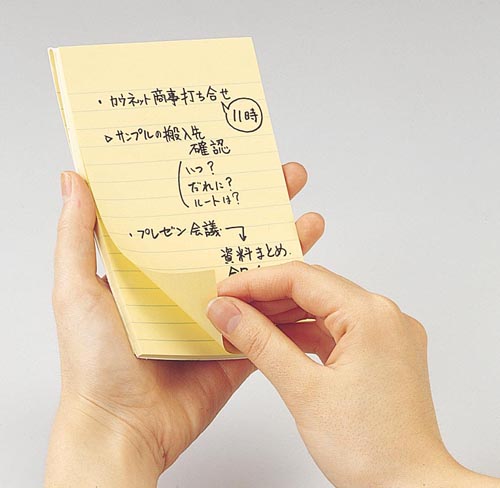 ・カウネット商事打ち合せ
11時
▷サンプルの搬入先
確認
いつ？
だれに？
ルートは？
・プレゼン会議
資料まとめ